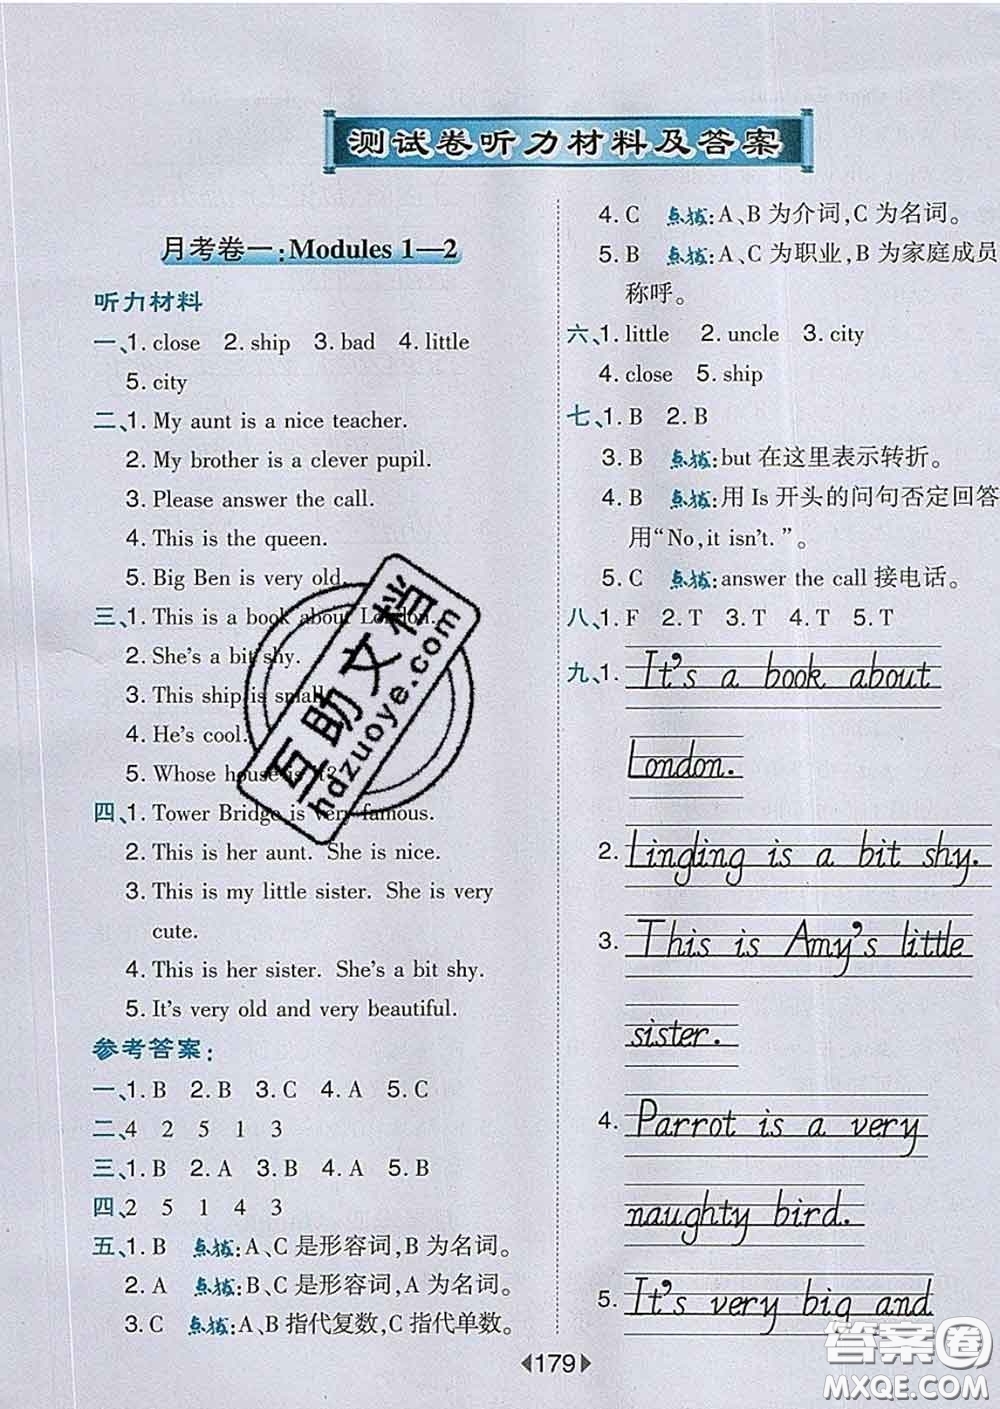 测试卷听力材料及答案
月考卷一:Modules 1—2
听力材料
一、1. close 2. ship 3. bad 4. little
5. city
二、1. My aunt is a nice teacher.
2. My brother is a clever pupil.
3. Please answer the call.
4. This is the queen.
5. Big Ben is very old.
三、1. This is a book about London.
2. She's a bit shy.
3. This ship is small.
4. He's cool.
5. Whose house is it?
四、1. Tower Bridge is very famous.
2. This is her aunt. She is nice.
3. This is my little sister. She is very
cute.
4. This is her sister. She's a bit shy.
5. It's very old and very beautiful.
参考答案:
一、1. B 2. B 3. C 4. A 5. C
二、4 2 5 1 3
三、1. B 2. A 3. B 4. A 5. B
四、2 5 1 4 3
五、1. B 点拨:A、C 是形容词,B 为名词。
2. A 点拨:B、C 是形容词,A 为名词。
3. C 点拨:A、B 指代复数,C 指代单数。
4. C 点拨:A、B 为介词,C 为名词。
5. B 点拨:A、C 为职业,B 为家庭成员
称呼。
六、1. little 2. uncle 3. city
4. close 5. ship
七、1. B 2. B
3. B 点拨:but 在这里表示转折。
4. B 点拨:用 Is 开头的问句否定回答
用“No,it isn't.”。
5. C 点拨:answer the call 接电话。
八、1. F 2. T 3. T 4. T 5. T
九、1. It's a book about
London.
2. Lingling is a bit shy.
3. This is Amy's little
sister.
4. Parrot is a very
naughty bird.
5. It's very big and
179
互助文档
hdzuoye.com
答案圈
MXQE.COM